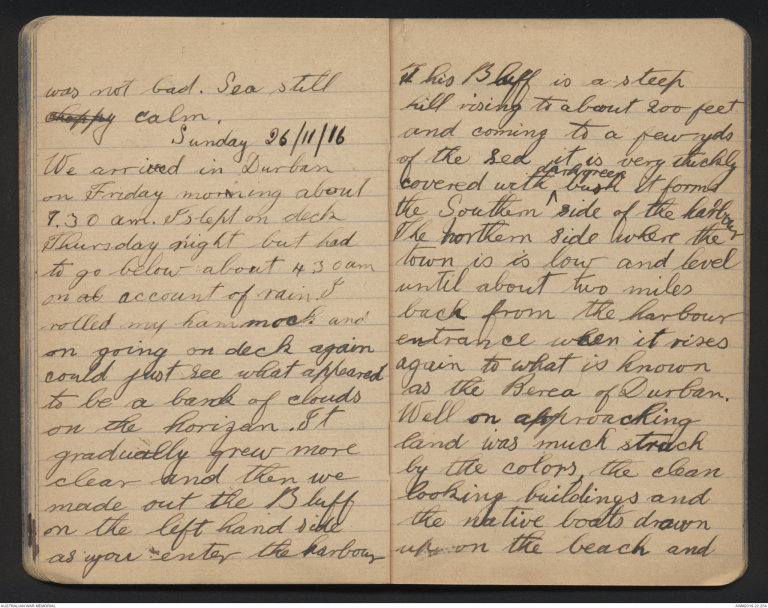 was not bad. Sea still
choppy calm.
Sunday 26/11/16
We arrived in Durban
on Friday morning about
7.30 am. I slept on deck
Thursday night but had
to go below about 4 30 am
on ac account of rain. I
rolled my hammock and
on going on deck again
could just see what appeared
to be a bank of clouds
on the horizan. It
gradually grew more
clear and then we
made out the Bluff
on the left hand side
as you enter the harbour
This Bluff is a steep
hill rising to about 200 feet
and coming to a few yds
of the sea it is very thickly
dark green
covered with ^ bush It forms
the Southern side of the harbour
The northern side where the
town is is low and level
until about two miles
back from the harbour
entrance when it rises
again to what is known
as the Berea of Durban.
Well on approaching
land was much struck
by the colors, the clean
looking buildings and
the native boats drawn
up on the beach and
AUSTRALIAN WAR MEMORIAL